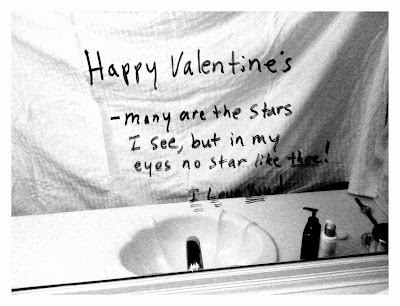 Happy Valentine's
- many are the stars
I see, but in my
eyes no star like thee!
I Love You!